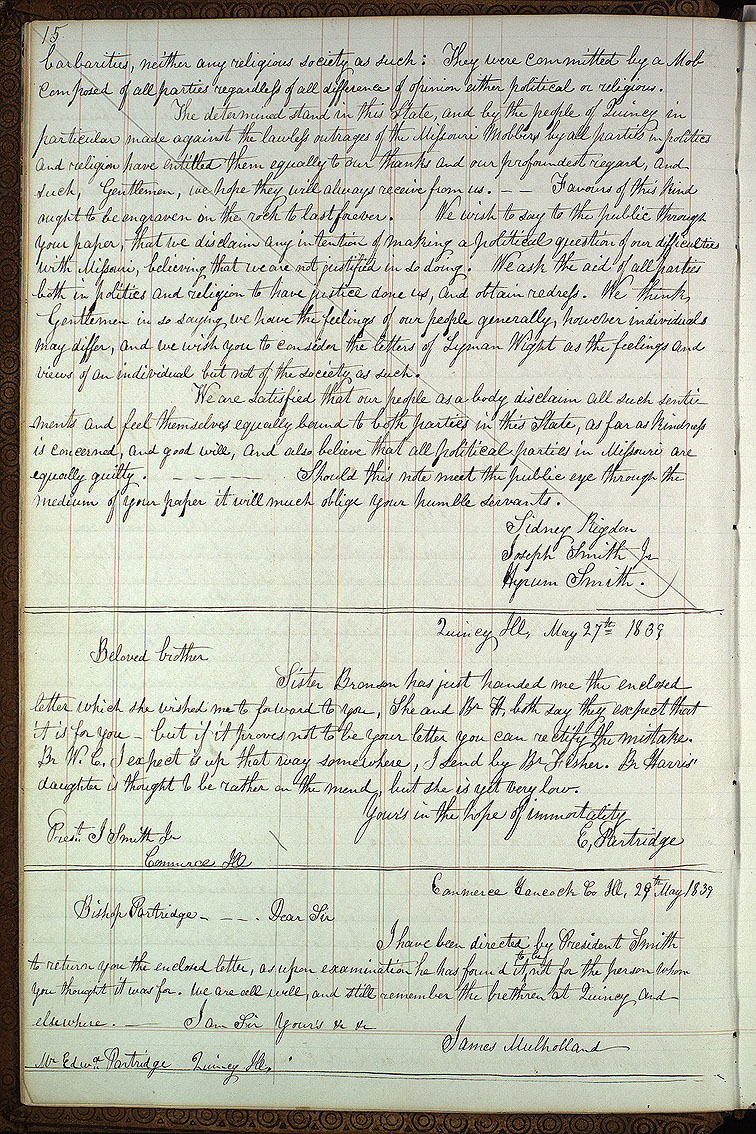 15
barbarities, neither any religious society as such: They were committed by a Mob
composed of all parties regardless of all difference of opinion either political or religious.
The determined stand in this State, and by the people of Quincy in
particular made against the lawless outrages of the Missouri Mobbers by all parties in politics
and religion have entitled them equally to our thanks and our profoundest regard, and
such, Gentlemen, we hope they will always receive from us. — — Favours of this kind
ought to be engraven on the rock to last forever. We wish to say to the public through
your paper, that we disclaim any intention of making a political question of our difficulties
with Missouri, believing that we are not justified in so doing. We ask the aid of all parties
both in politics and religion to have justice done us, and obtain redress. We think,
Gentlemen in so saying we have the feelings of our people generally, however individuals
may differ, and we wish you to consider the letters of Lyman Wight as the feelings and
views of an individual but not of the society as such.
We are satisfied that our people as a body disclaim all such senti-
ments and feel themselves equally bound to both parties in this State, as far as kindness
is concerned, and good will, and also believe that all political parties in Missouri are
equally guilty. — — — — — Should this note meet the public eye through the
medium of your paper it will much oblige your humble servants.
Sidney Rigdon
Joseph Smith Jr
Hyrum Smith.
Quincy Ill, May 27th 1839
Beloved brother
Sister Bronson has just handed me the enclosed
letter which she wished me to forward to you, She and Br H, both say they expect that
it is for you — but if it proves not to be your letter you can rectify the mistake.
Br W. C. I expect is up that way somewhere, I send by Br Fisher. Br Harris'
daughter is thought to be rather on the mend, but she is yet very low.
Yours in the hope of immortality
E, Partridge
Prest. J Smith Jr
Commerce Ill
Commerce Hancock Co Ill, 29th May 1839
Bishop Partridge — — — . Dear Sir
I have been directed by President Smith
to return you the enclosed letter, as upon examination he has found it, to be not for the person whom
you thought it was for. We are all well, and still remember the brethren at Quincy and
elsewhere. — I am Sir Yours &c &c
James Mulholland
Mr Edwd Partridge Quincy Ill.